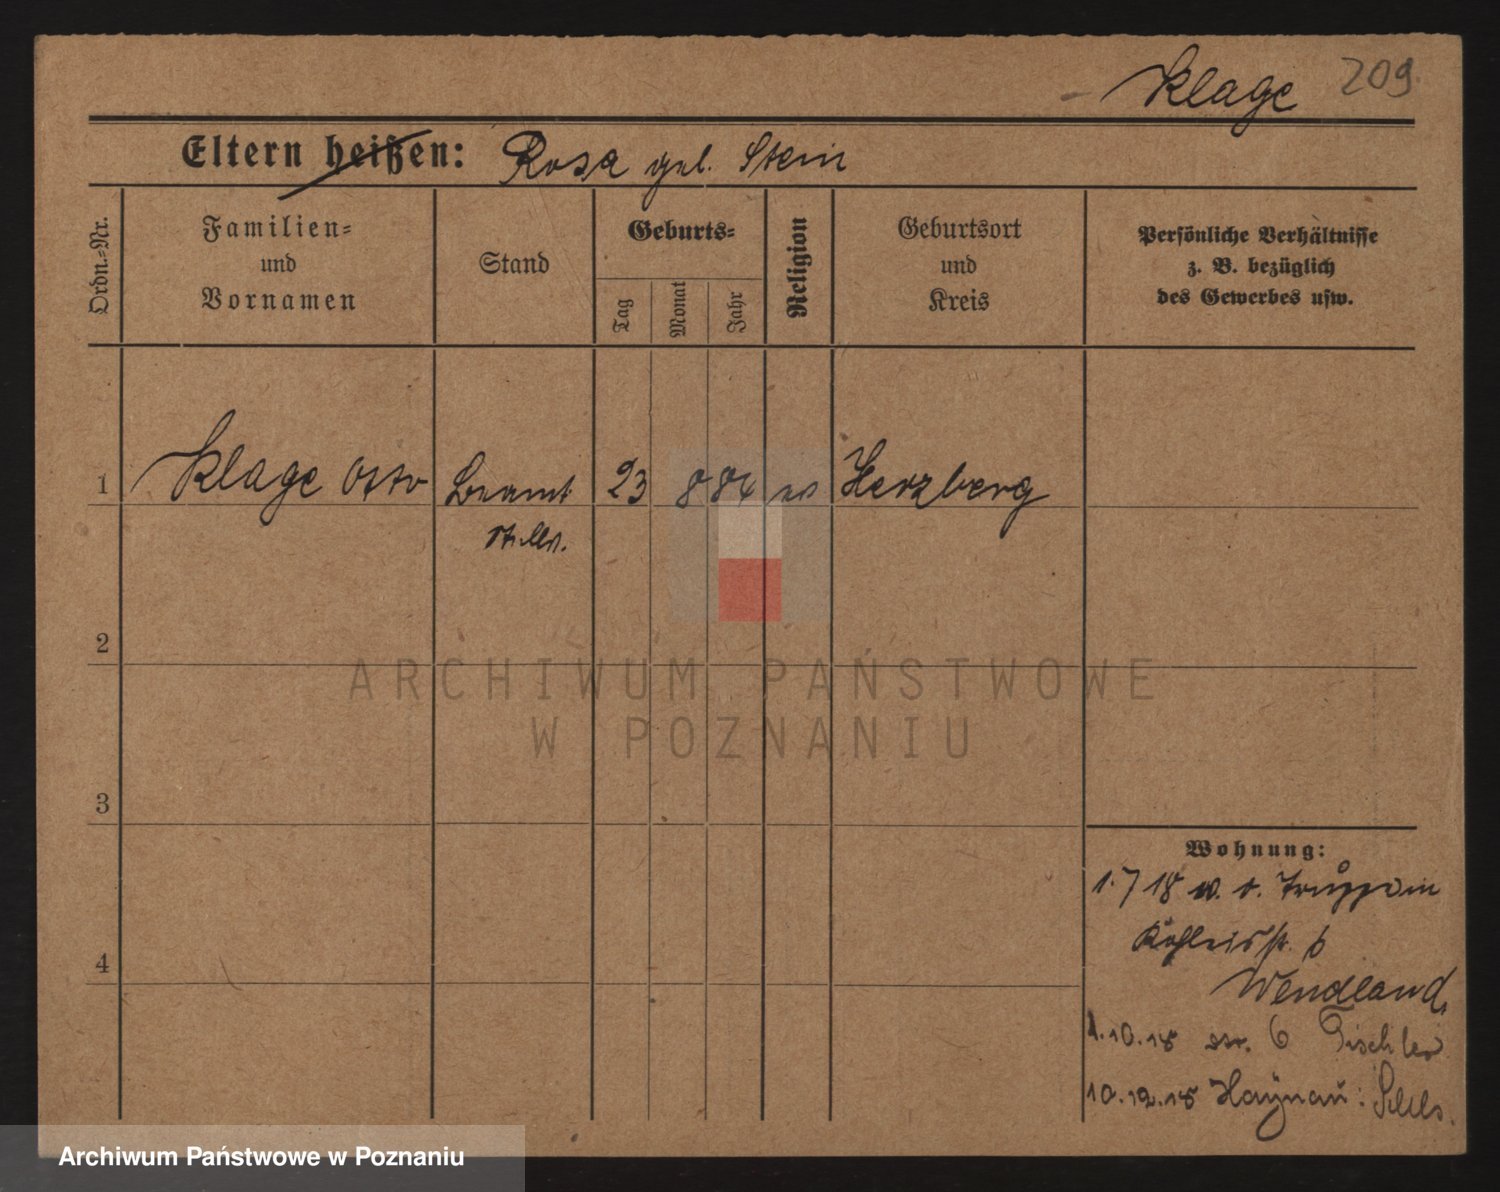 Klage 209
Eltern heißen: Rosa geb. Stein
Ordn.-Nr.
Familien-
und
Vornamen
Stand
Geburts-
Tag
Monat
Jahr
Religion
Geburtsort
und
Kreis
Persönliche Verhältnisse
z. B. bezüglich
des Gewerbes usw.
1 Klage Otto Beamt 23 8 84 ev Herzberg
stellv.
2
3
4
Wohnung:
1.7 18 v.
6
Wendland
1.10.18 6 Tischler
10.12.18 Haynau: Schls.
ARCHIWUM PAŃSTWOWE
W POZNANIU
Archiwum Państwowe w Poznaniu